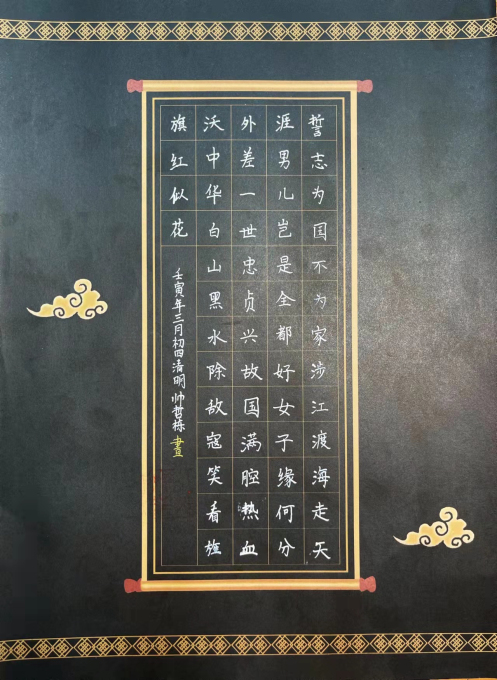 誓志为国不为家涉江渡海走天
涯男儿岂是全都好女子缘何分
外差一世忠贞兴故国满腔热血
沃中华白山黑水除敌寇笑看旌
旗红似花
壬寅年三月初四清明 帅哲栋 書